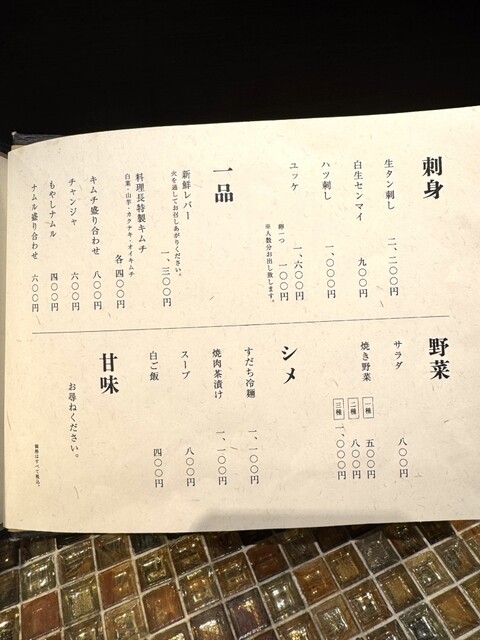 刺身
生タン刺し 二、二〇〇円
白生センマイ 九〇〇円
ハツ刺し 一、〇〇〇円
ユッケ 一、六〇〇円
卵一つ 一〇〇円
※人数分お出し致します。
一品
新鮮レバー 一、三〇〇円
火を通してお召しあがりください。
料理長特製キムチ 各 四〇〇円
白菜・山芋・カクテキ・オイキムチ
キムチ盛り合わせ 八〇〇円
チャンジャ 六〇〇円
もやしナムル 四〇〇円
ナムル盛り合わせ 六〇〇円
野菜
サラダ 八〇〇円
焼き野菜 一種 五〇〇円
二種 八〇〇円
三種 一、〇〇〇円
シメ
すだち冷麺 一、一〇〇円
焼肉茶漬け 一、一〇〇円
スープ 八〇〇円
白ご飯 四〇〇円
甘味
お尋ねください。
価格はすべて税込。